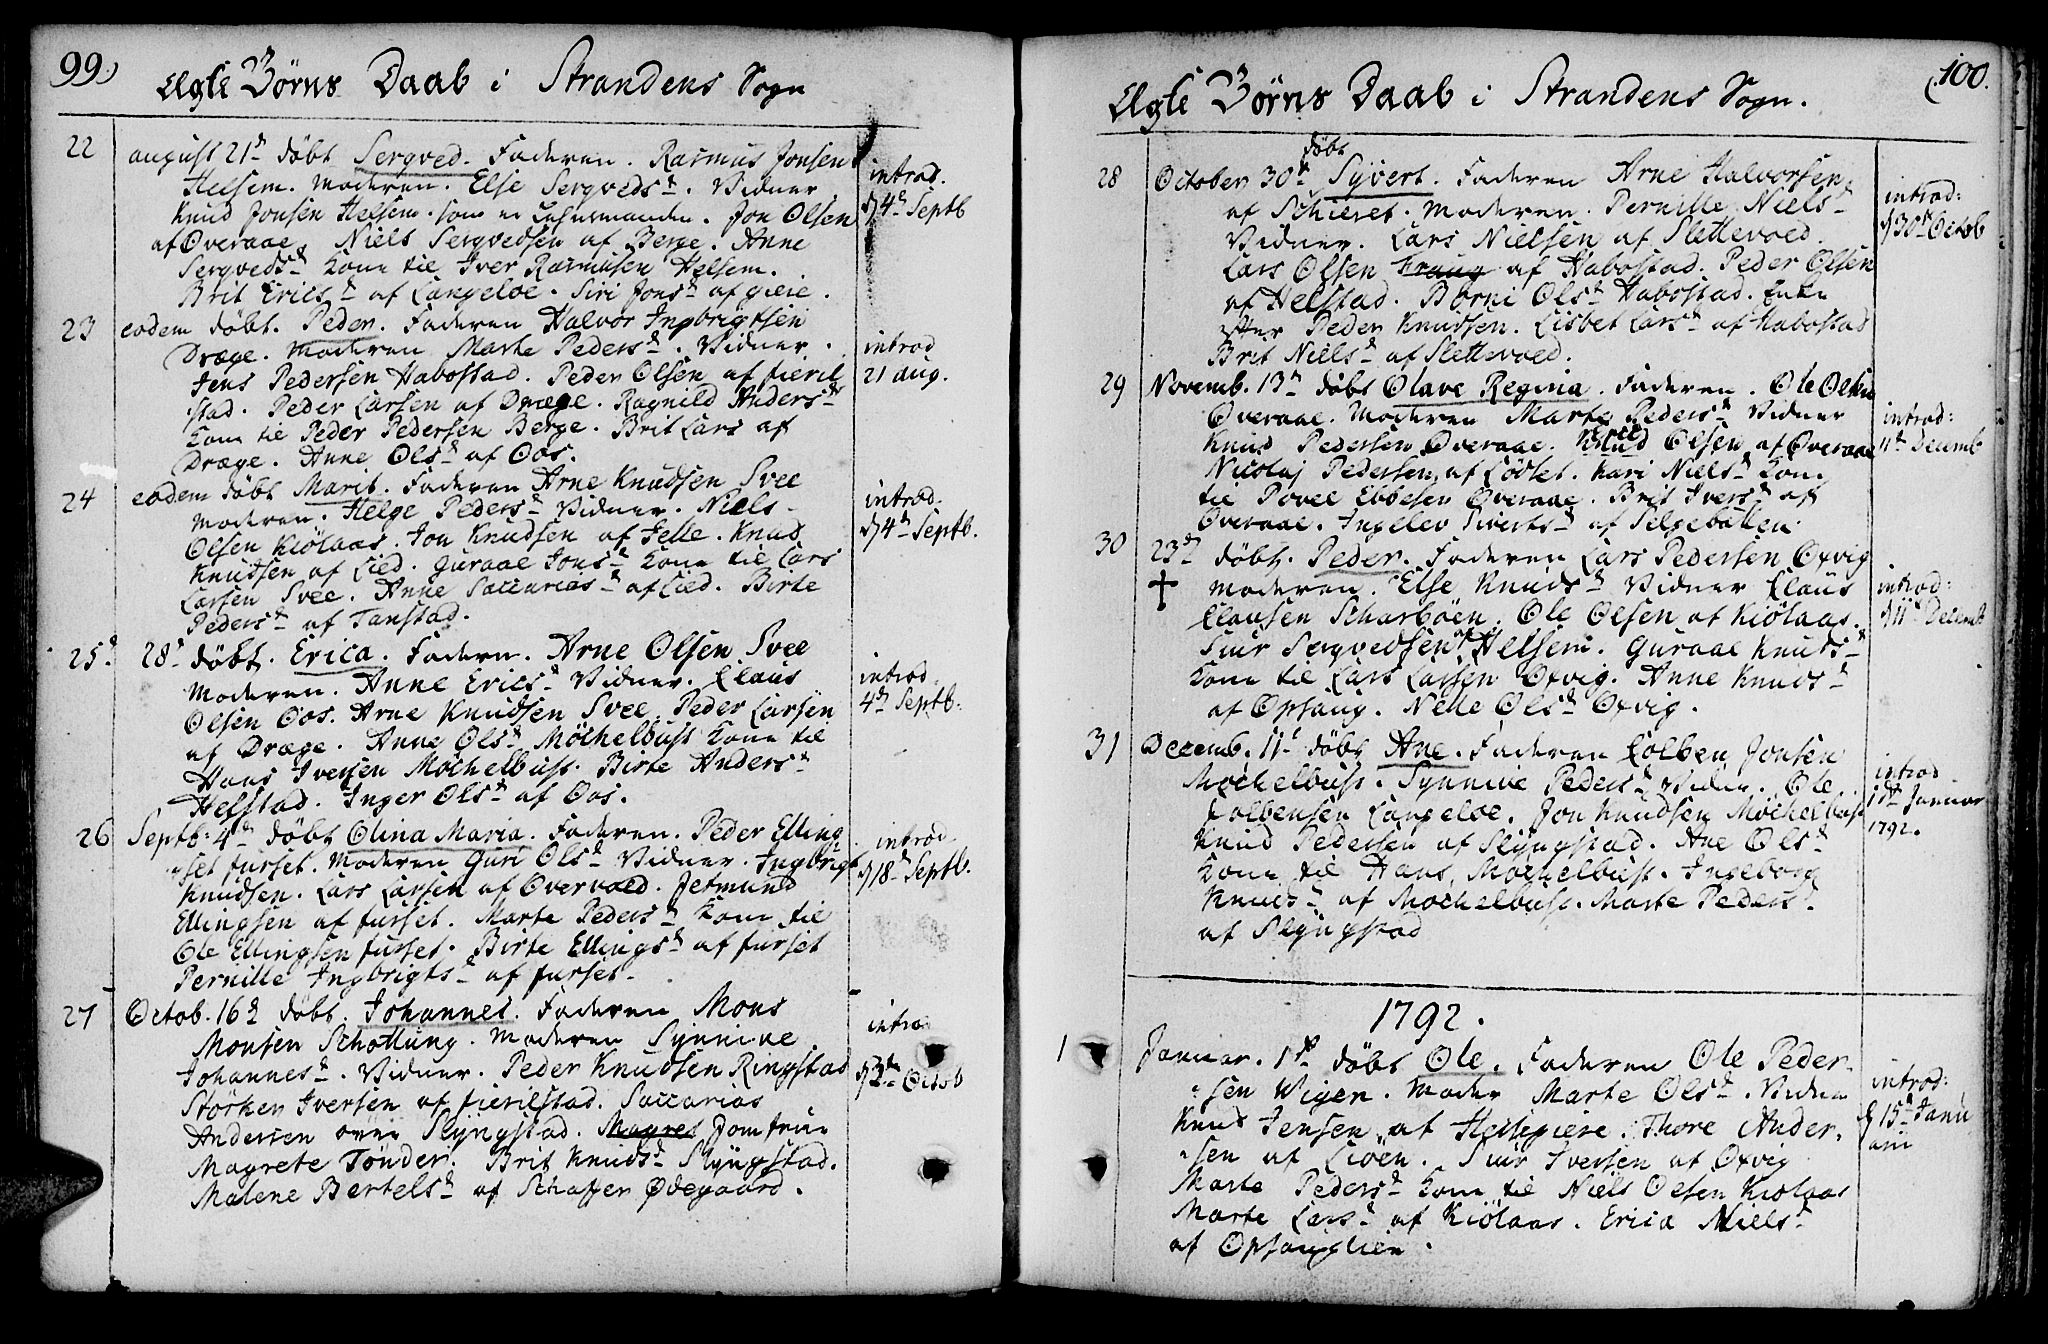 99.)
Ægte Börns Daab i Strandens Sogn
22 august 21de döbt Sergved. Faderen. Rasmus Jonsen
Helsem. Moderen. Else Sergvedsd. Vidner
Knud Jonsen Helsem. som er Jon Olsen
af Överaae. Niels Sergvedsen af Berge. Anne
Sergvedsd Kone til Iver Rasmusen Helsem.
Brit Ericsd af Langeloe. Siri Jonsd af giere.
introd.
d 4de Septb
23 eodem döbt. Peder. Faderen Halvor Ingbrigtsen
Dræge. Moderen Marte Pedersd. Vidner.
Jens Pedersen Habostad. Peder Olsen af fieril
stad. Peder Larsen af Dræge. Ragnild Andersd
Kone til Peder Pedersen Berge. Brit Lars af
Dræge. Anne Olsd af Oos.
introd
21 aug.
24 eodem döbt Marit. Faderen Arne Knudsen Svee
Moderen. Helge Pedersd Vidner. Niels
Olsen Kiölaas. Jon Knudsen af Jelle. Knud
Knudsen af Lied. Guraae Jonsd Kone til Lars
Larsen Svee. Anne Saccariasd af Lied. Birte
Pedersd af Tanstad.
introd.
d 4de Septb.
25. 28de döbt. Erica. Faderen. Arne Olsen Svee
Moderen. Anne Ericsd Vidner. Claus
Olsen Oos. Arne Knudsen Svee. Peder Larsen
af Dræge. Anne Olsd Möchelbust Kone til
Hans Iversen Möchelbust. Birte Andersd
Helstad. Inger Olsd af Oos.
introd.
4de Septb.
26 Septb. 4de döbt Olina Maria. Faderen. Peder Elling
set furset. Moderen Guri Olsd Vidner. Ingbrigt
Knudsen. Lars Larsen af Overvoed. Jetmund
Ellingsen af furset. Marte Pedersd Kone til
Ole Ellingsen furset. Birte Ellingsd af furset
Pernille Ingbrigtsd af furset.
introd.
d 18de Septb.
27 Octob. 16de döbt. Johannes. Faderen Mons
Monsen Schotlung. Moderen Synnive
Johannesd. Vidner. Peder Knudsen Ringstad
Störker Iversen af fierilstad. Saccarias
Andersen övre Slyngstad. Magret Jomfrue
Magrete Tönder. Brit Knudsd Slyngstad.
Malene Bertelsd af Schaffer Ödegaard.
intro
Octob
(100.
Ægte Börns Daab i Strandens Sogn.
28 October 30te döbt Syvert. Faderen Arne Halvorsen
af Schieret. Moderen. Pernille Nielsd
Vidner. Lars Nielsen af Slettevoed.
Lars Olsen af Habostad. Peder Olsen
af Helstad. Börni Olsd Habostad. Enke
efter Peder Knudsen. Lisbet Larsd af Habostad
Brit Nielsd af Slettevoed.
introd:
d 30te Octob
29 Novemb. 13de döbt Olave Regina. Faderen. Ole Olsen
Överaae. Moderen Marte Pedersd Vidner
Knud Pedersen Överaae. Olsen af Överaae
Nicolaj Pedersen af Lödset. Kari Nielsd Kone
til Povel Ebbesen Överaae. Brit Iversd af
Överaae. Ingelev Sivertsd af Selgebacken.
introd:
11te Decemb
30 23de döbt. Peder. Faderen Lars Pedersen Oxvig
† Moderen. Else Knudsd Vidner Claus
Clausen Scharböen. Ole Olsen af Kiölaas.
Siur Sergvedsen af Helsem. Guraae Knudsd
Kone til Lars Larsen Oxvig. Anne Knudsd
af Opsang. Nelle Olsd Oxvig.
introd:
d 11te Decemb
31 Decemb. 11te döbt Ane. Faderen Colben Jonsen
Möchelbust. Synnive Pedersd Vidner. Ole
Colbensen Langeloe. Jon Knudsen Möchelbust
Knud Pedersen af Slyngstad. Ane Olsd
Kone til Hans Möchelbust. Ingeborg
Knudsd af Mochelbust. Marte Pedersd
af Slyngstad
introd
1ste Januar
1792.
1792.
1 Januar. 1ste döbt Ole. Faderen Ole Peder-
sen Wigen. Moder Marte Olsd. Vidner
Knud Jensen af Hellegiere. Thore Ander-
sen af Lioen. Siur Iversen af Oxvig
Marte Pedersd Kone til Niels Olsen Kiölaas
Marte Larsd af Kiölaas. Erica Nielsd
af Opsanglien.
introd:
d 15de Janu
arii